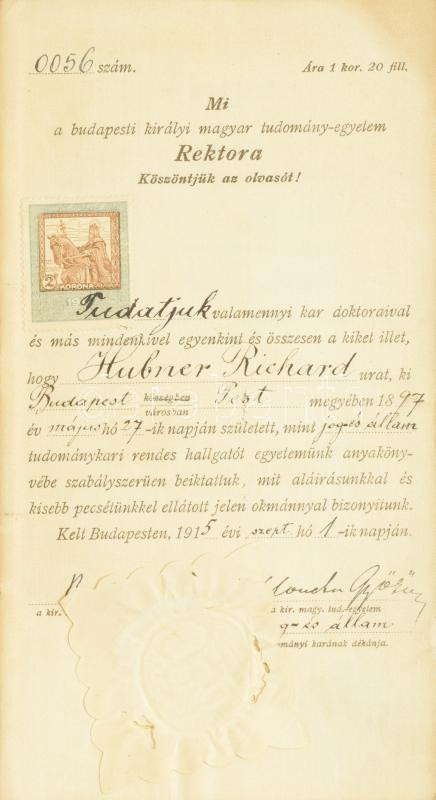 0056 szám. Ára 1 kor. 20 fill.
Mi
a budapesti királyi magyar tudomány-egyetem
Rektora
Köszöntjük az olvasót!
2 KORONA
19
Tudatjuk valamennyi kar doktoraival
és más mindenkivel egyenkint és összesen a kiket illet,
hogy Hubner Richard urat, ki
Budapest községben városban Pest megyében 1897
év május hó 27-ik napján született, mint jog és állam
tudománykari rendes hallgatót egyetemünk anyaköny-
vébe szabályszerüen beiktattuk, mit aláirásunkkal és
kisebb pecsétünkkel ellátott jelen okmánnyal bizonyitunk.
Kelt Budapesten, 1915 évi szept. hó 1-ik napján.
a kir. a kir. magy. tud. egyetem
g- és állam
ományi karának dékánja.